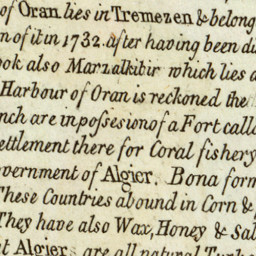 of Oran lies in Tremezen & belong
n of it in 1732. after having been di
ook also Marzalkibir which lies a
Harbour of Oran is reckoned the
nch are in possesion of a Fort calle
ettlement there for Coral fishery
vernment of Algier. Bona form
These Countries abound in Corn &
They have also Wax, Honey & Sal
at Algier are all natural Turk